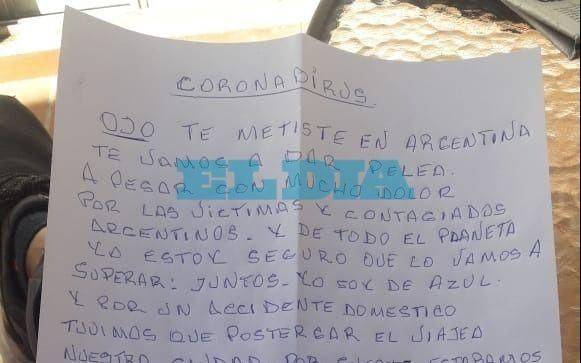 CORONADIRUS
OJO TE METISTE EN ARGENTINA
TE VAMOS A DAR PELEA.
A PESAR CON MUCHO DOLOR
POR LAS VICTIMAS Y CONTAGIADOS
ARGENTINOS. Y DE TODO EL PLANETA
YO ESTOY SEGURO QUE LO VAMOS A
SUPERAR: JUNTOS. YO SOY DE AZUL.
Y POR UN ACCIDENTE DOMESTICO
TUVIMOS QUE POSTERGAR EL VIAJE A
NUESTRA CIUDAD POR
EL DIA